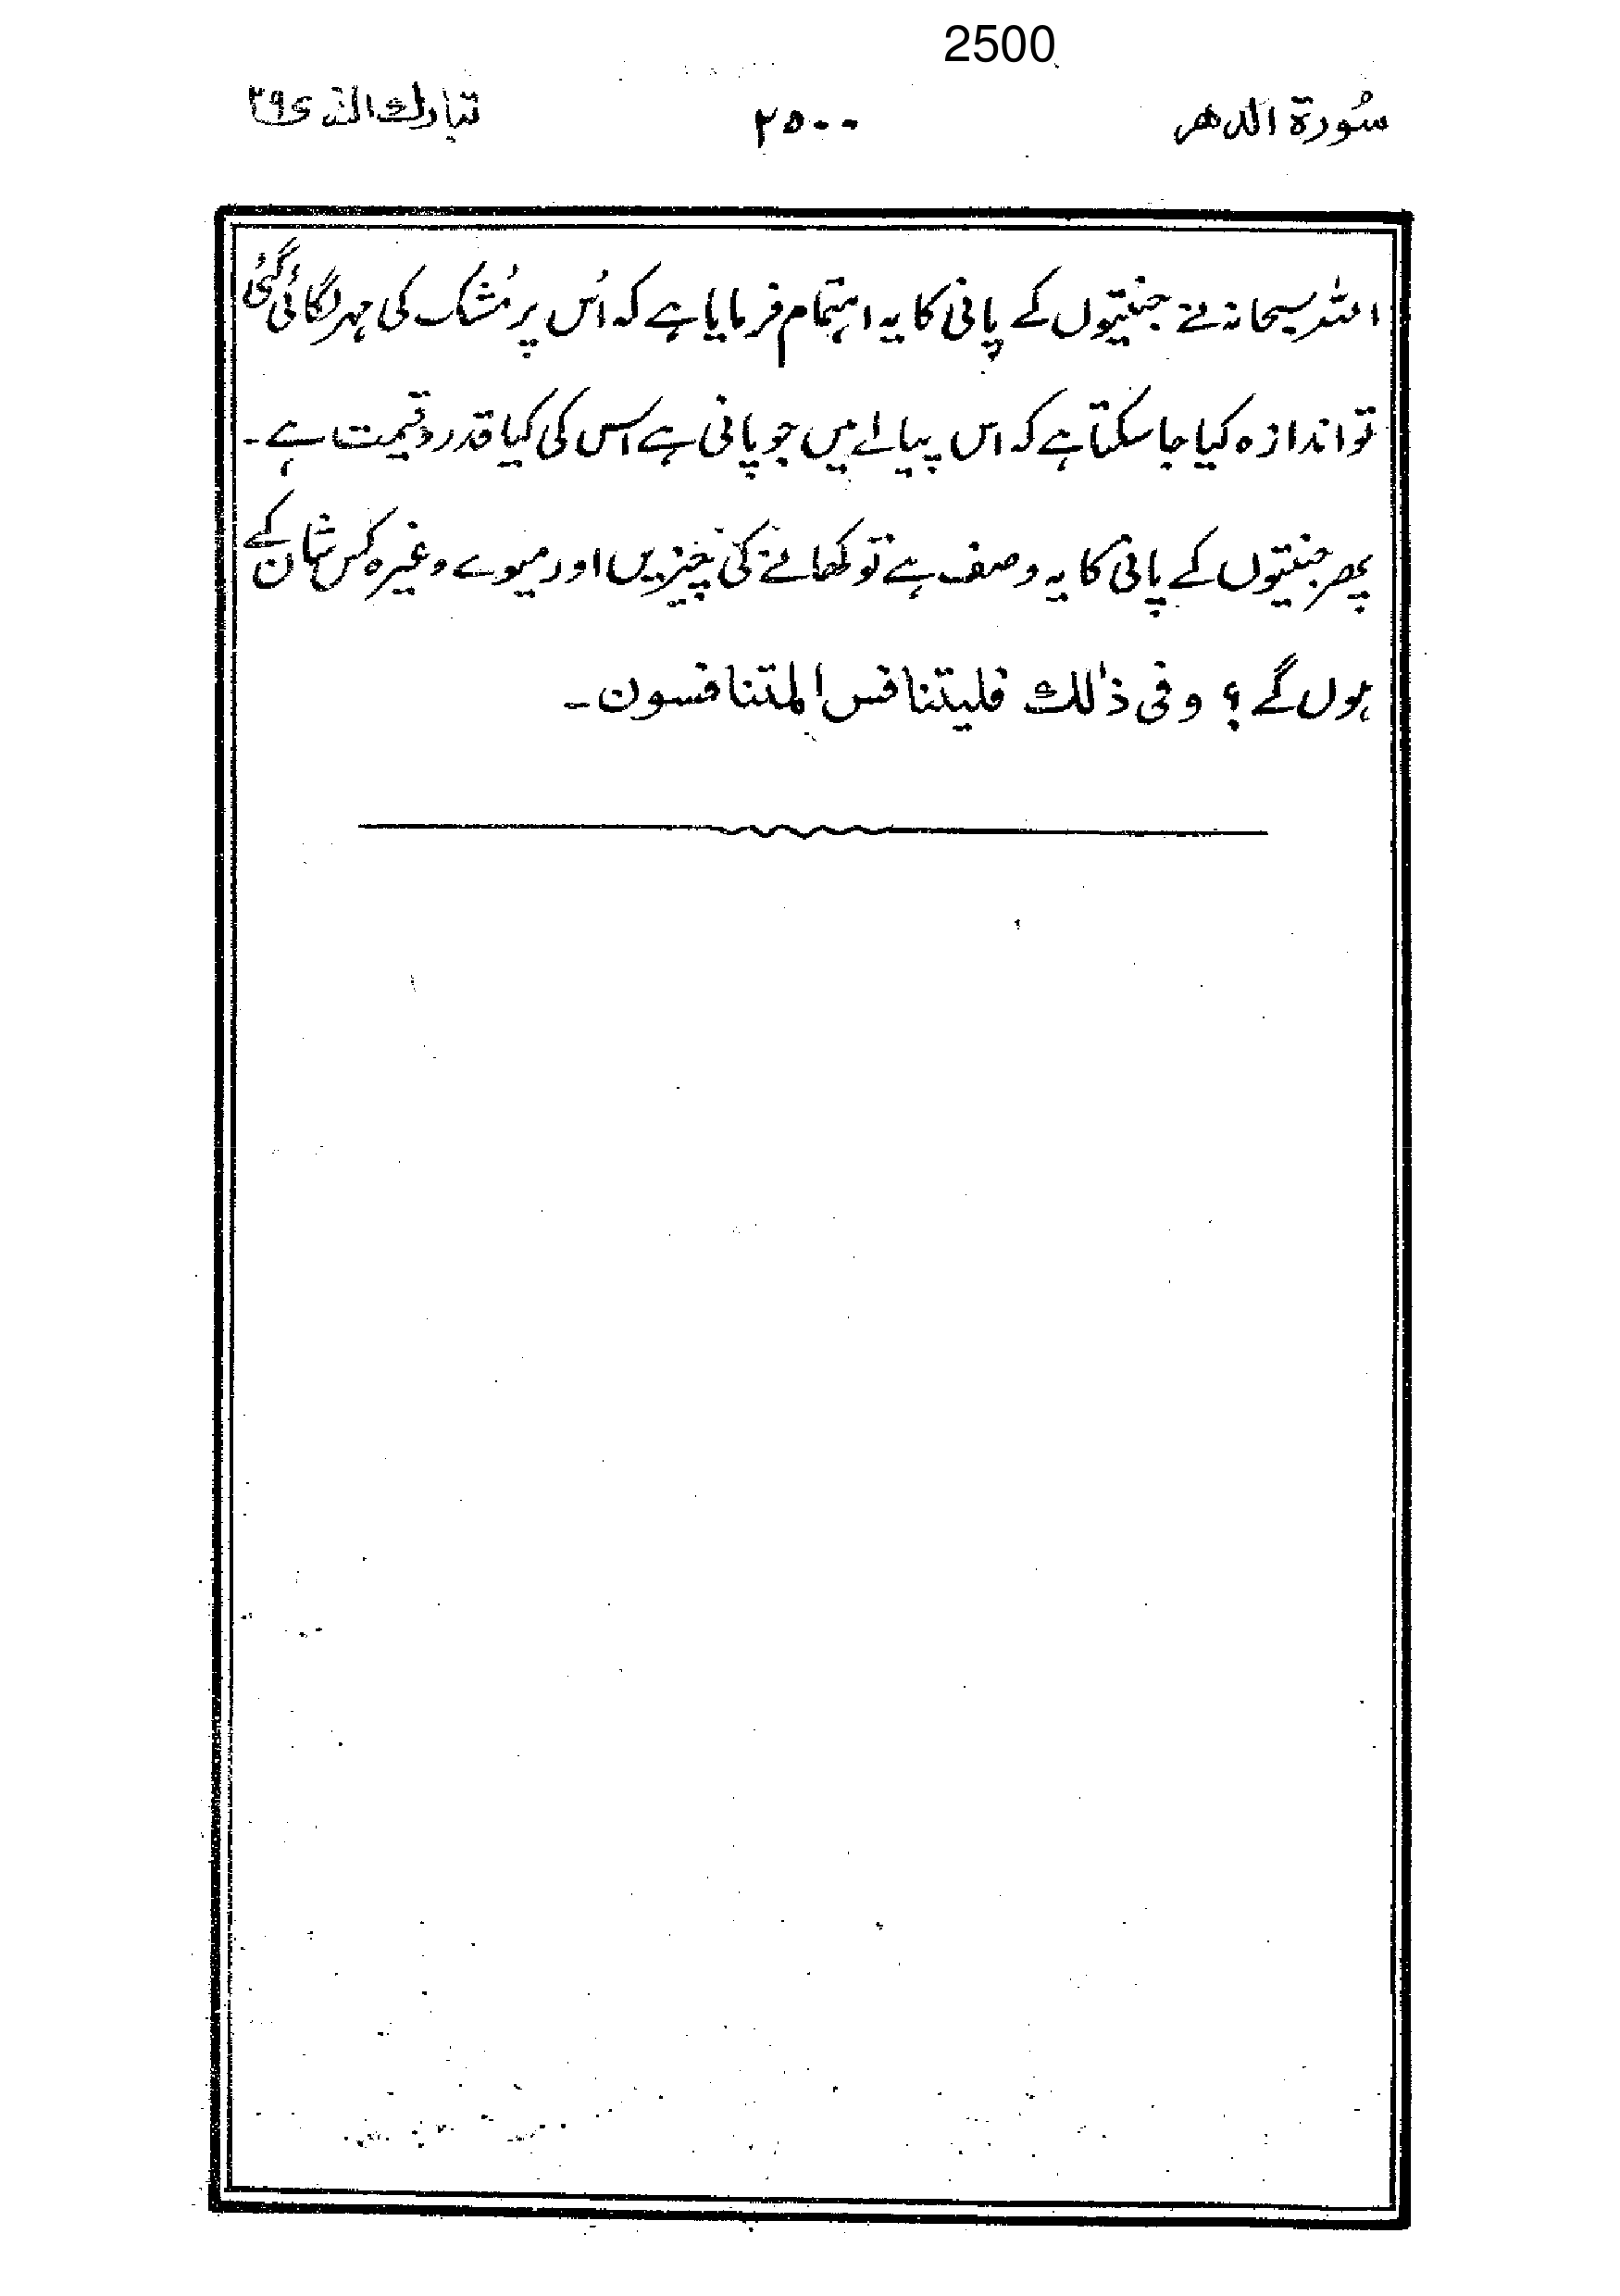 2500
سُورة الدهر ۲۵۰۰ تبارك الذی ۲۹
اللہ سبحانہ نے جنتیوں کے پانی کا یہ اہتمام فرمایا ہے کہ اُس پر مُشک کی مہر لگائی گئی
تو اندازہ کیا جا سکتا ہے کہ اس پیالے میں جو پانی ہے اس کی کیا قدر و قیمت ہے۔
پھر جنتیوں کے پانی کا یہ وصف ہے تو کھانے کی چیزیں اور میوے وغیرہ کس شان کے
ہوں گے؟ وفی ذٰلك فلیتنافس المتنافسون۔